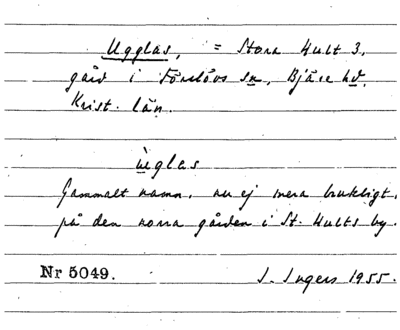 Ugglas, = Stora Hult 3,
gård i Förslövs sn, Bjäre hd,
Krist. län.
ùglas
Gammalt namn, nu ej mera brukligt,
på den norra gården i St. Hults by.
Nr 5049. I. Ingers 1955.